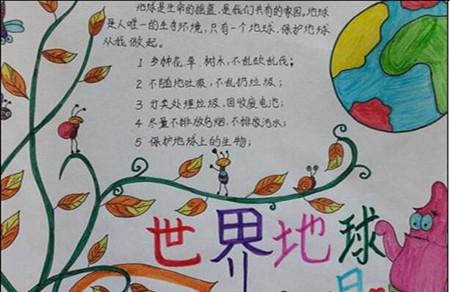 地球是生命的摇篮,是我们共有的家园。地球
是人唯一的生存环境,只有一个地球,保护地球
从我做起。
1 多种花、草、树木,不乱砍乱伐;
2 不随地吐痰,不乱扔垃圾;
3 分类处理垃圾,回收废电池;
4 尽量不排放乌烟,不排放污水;
5 保护地球上的生物;
世界地球
日